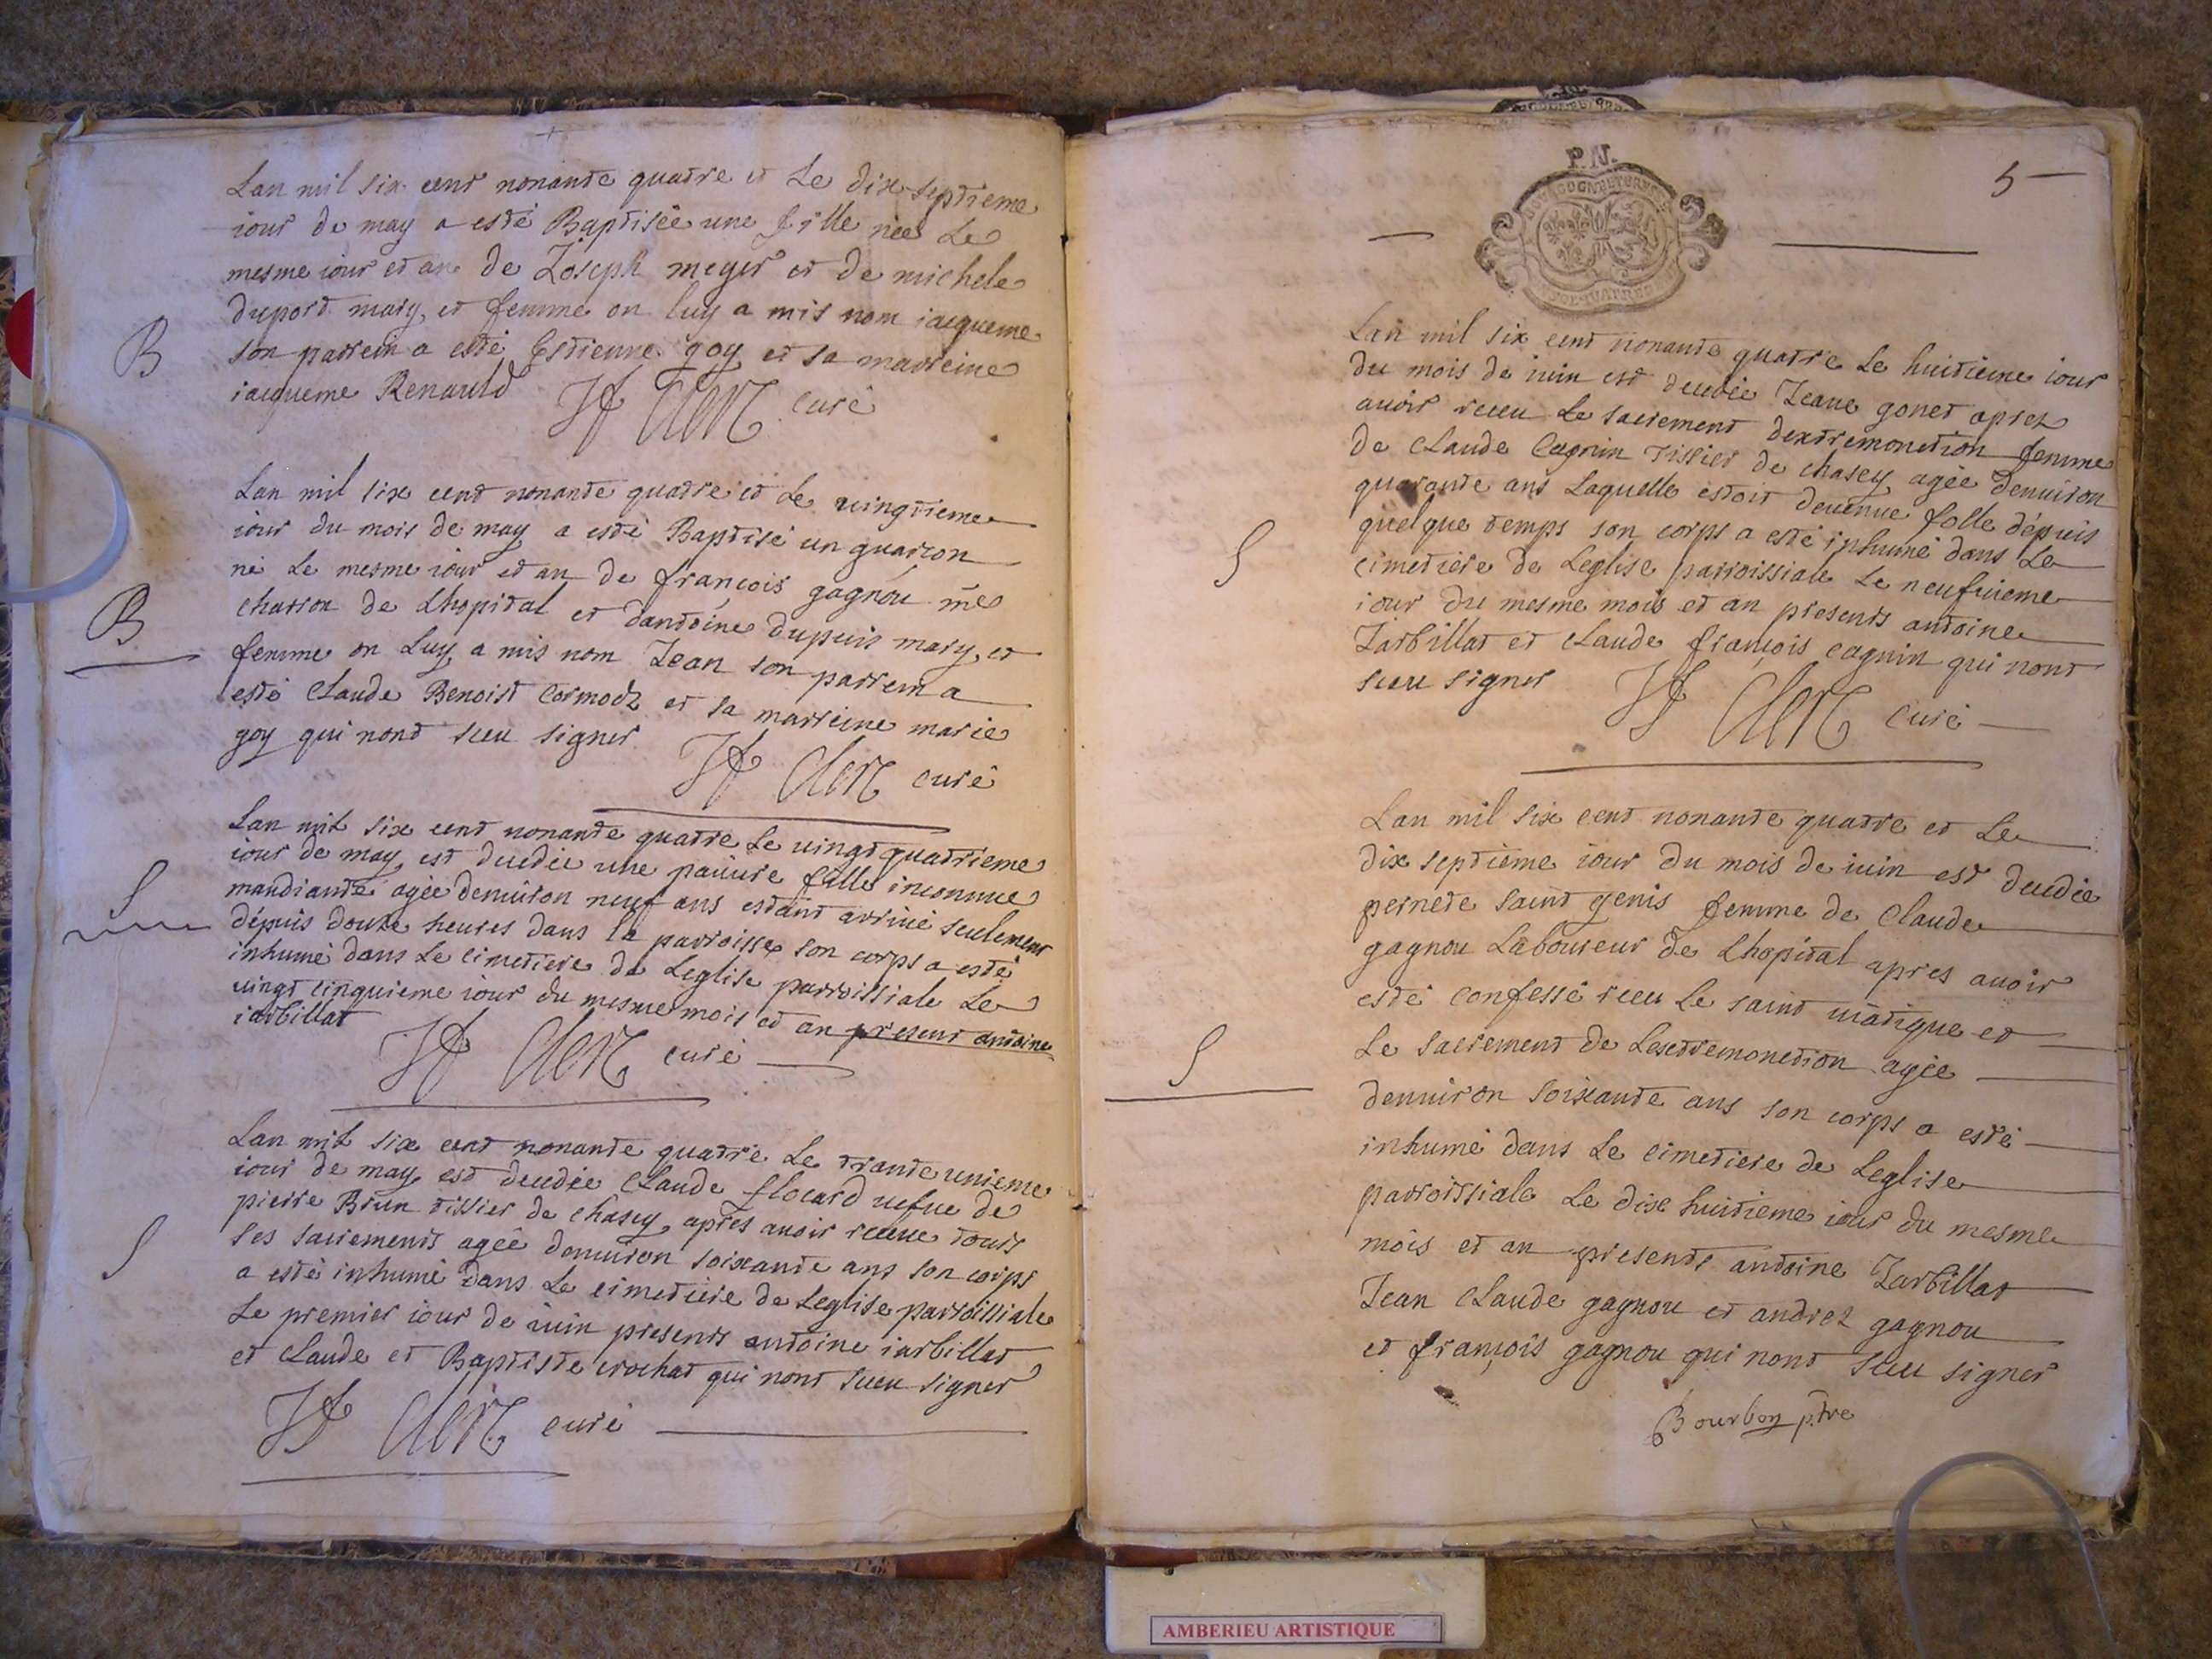 Lan mil six cent nonante quatre et Le dix septieme
iour de may a esté Baptisée une fille née Le
mesme iour et an de Joseph meyer et de michele
duport mary et femme on luy a mis nom iacqueme
B
son parrein a esté Estienne goy et sa marreine
iacqueme Renauld
Clerc curé
Lan mil six cent nonante quatre et Le vingtieme
iour du mois de may a esté Baptisé un guarcon
né Le mesme iour et an de françois gagnou me
B
charron de Lhopital et dantoine dupuis mary et
femme on Luy a mis nom Jean son parrein a
esté Claude Benoist Cormodz et sa marreine marie
goy qui nont sceu signer
Clerc curé
Lan mil six cent nonante quatre Le vingt quatrieme
iour de may est decedée une pauure fille inconnue
S
mandiante agée denuiron neuf ans estant arriué seulement
dépuis douze heures dans la parroisse son corps a esté
inhumé dans Le cimetiere de Leglise parroissiale Le
vingt cinquieme iour du mesme mois et an present antoine
iarbillat
Clerc curé
Lan mil six cent nonante quatre Le trante unieme
iour de may est decedée Claude flocard vefue de
pierre Brun tissier de chasey apres auoir receue tours
S
ses sacrements agée denuiron soixante ans son corps
a esté inhumé dans Le cimetiere de Leglise parroissiale
Le premier iour de iuin presents antoine iarbillat
et Claude et Baptiste crochat qui nont sceu signer
Clerc curé
P.N.
5
Lan mil six cent nonante quatre Le huitieme iour
du mois de iuin est decedée Jeane gonet aprez
auoir receu Le sacrement dextremonction femme
de Claude Cagnin tissier de chasey agée denuiron
quarante ans Laquelle estoit deuenue folle dépuis
S
quelque temps son corps a esté inhumé dans Le
cimetiere de Leglise parroissiale Le neufuieme
iour du mesme mois et an presents antoine
Jarbillat et Claude françois cagnin qui nont
sceu signer
Clerc Curé
Lan mil six cent nonante quatre et Le
dix septieme iour du mois de iuin est decedée
pernete saint genis femme de Claude
gagnou Laboureur de Lhopital apres auoir
esté confessé receu Le saint viatique et
S
Le sacrement de Lextremonction agée
denuiron soixante ans son corps a esté
inhumé dans Le cimetiere de Leglise
parroissiale Le dix huitieme iour du mesme
mois et an presents antoine Jarbillat
Jean Claude gagnou et andrez gagnou
et françois gagnou qui nont sceu signer
Bourbon ptre
AMBERIEU ARTISTIQUE